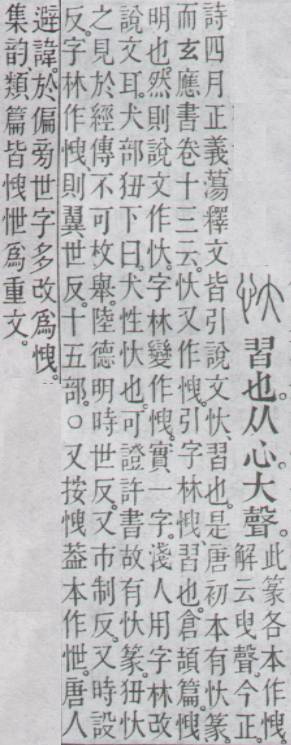 習也。从心。大聲。
此篆各本作𢘽。
解云曳聲。今正。
詩四月正義、蕩釋文皆引說文忕、習也。是唐初本有忕篆。
而玄應書卷十三云。忕又作𢘽。引字林𢘽、習也。倉頡篇。𢘽、
明也。然則說文作忕。字林變作𢘽。實一字。淺人用字林改
說文耳。犬部狃下曰。犬性忕也。可證許書故有忕篆。狃忕
之見於經傳不可枚舉。陸德明時世反。又市制反。又時設
反。字林作𢘽、則翼世反。十五部。○又按𢘽葢本作怈。唐人
避諱。於偏旁世字多改爲𢘽。
集韵類篇皆𢘽怈爲重文。